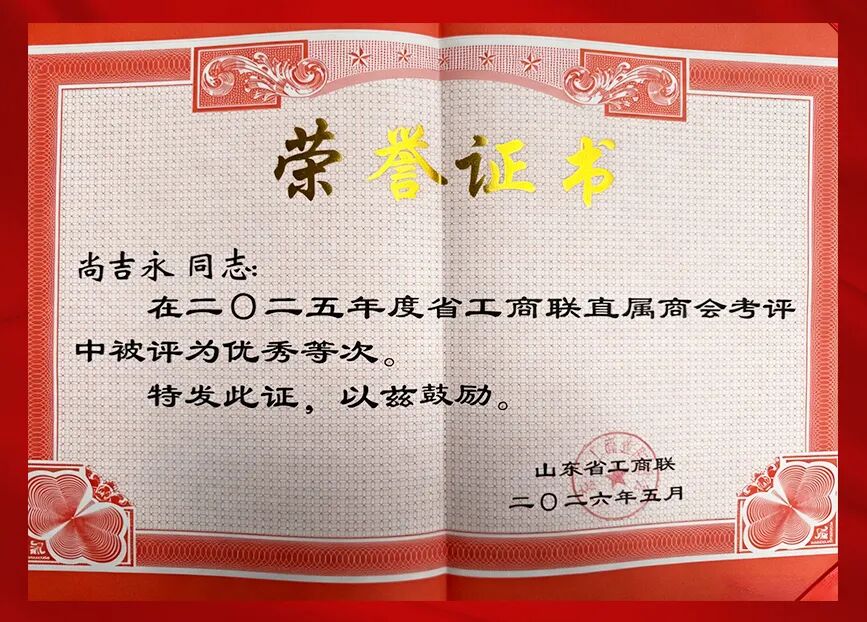 荣誉证书
尚吉永 同志:
在二〇二五年度省工商联直属商会考评
中被评为优秀等次。
特发此证，以兹鼓励。
山东省工商联
二〇二六年五月